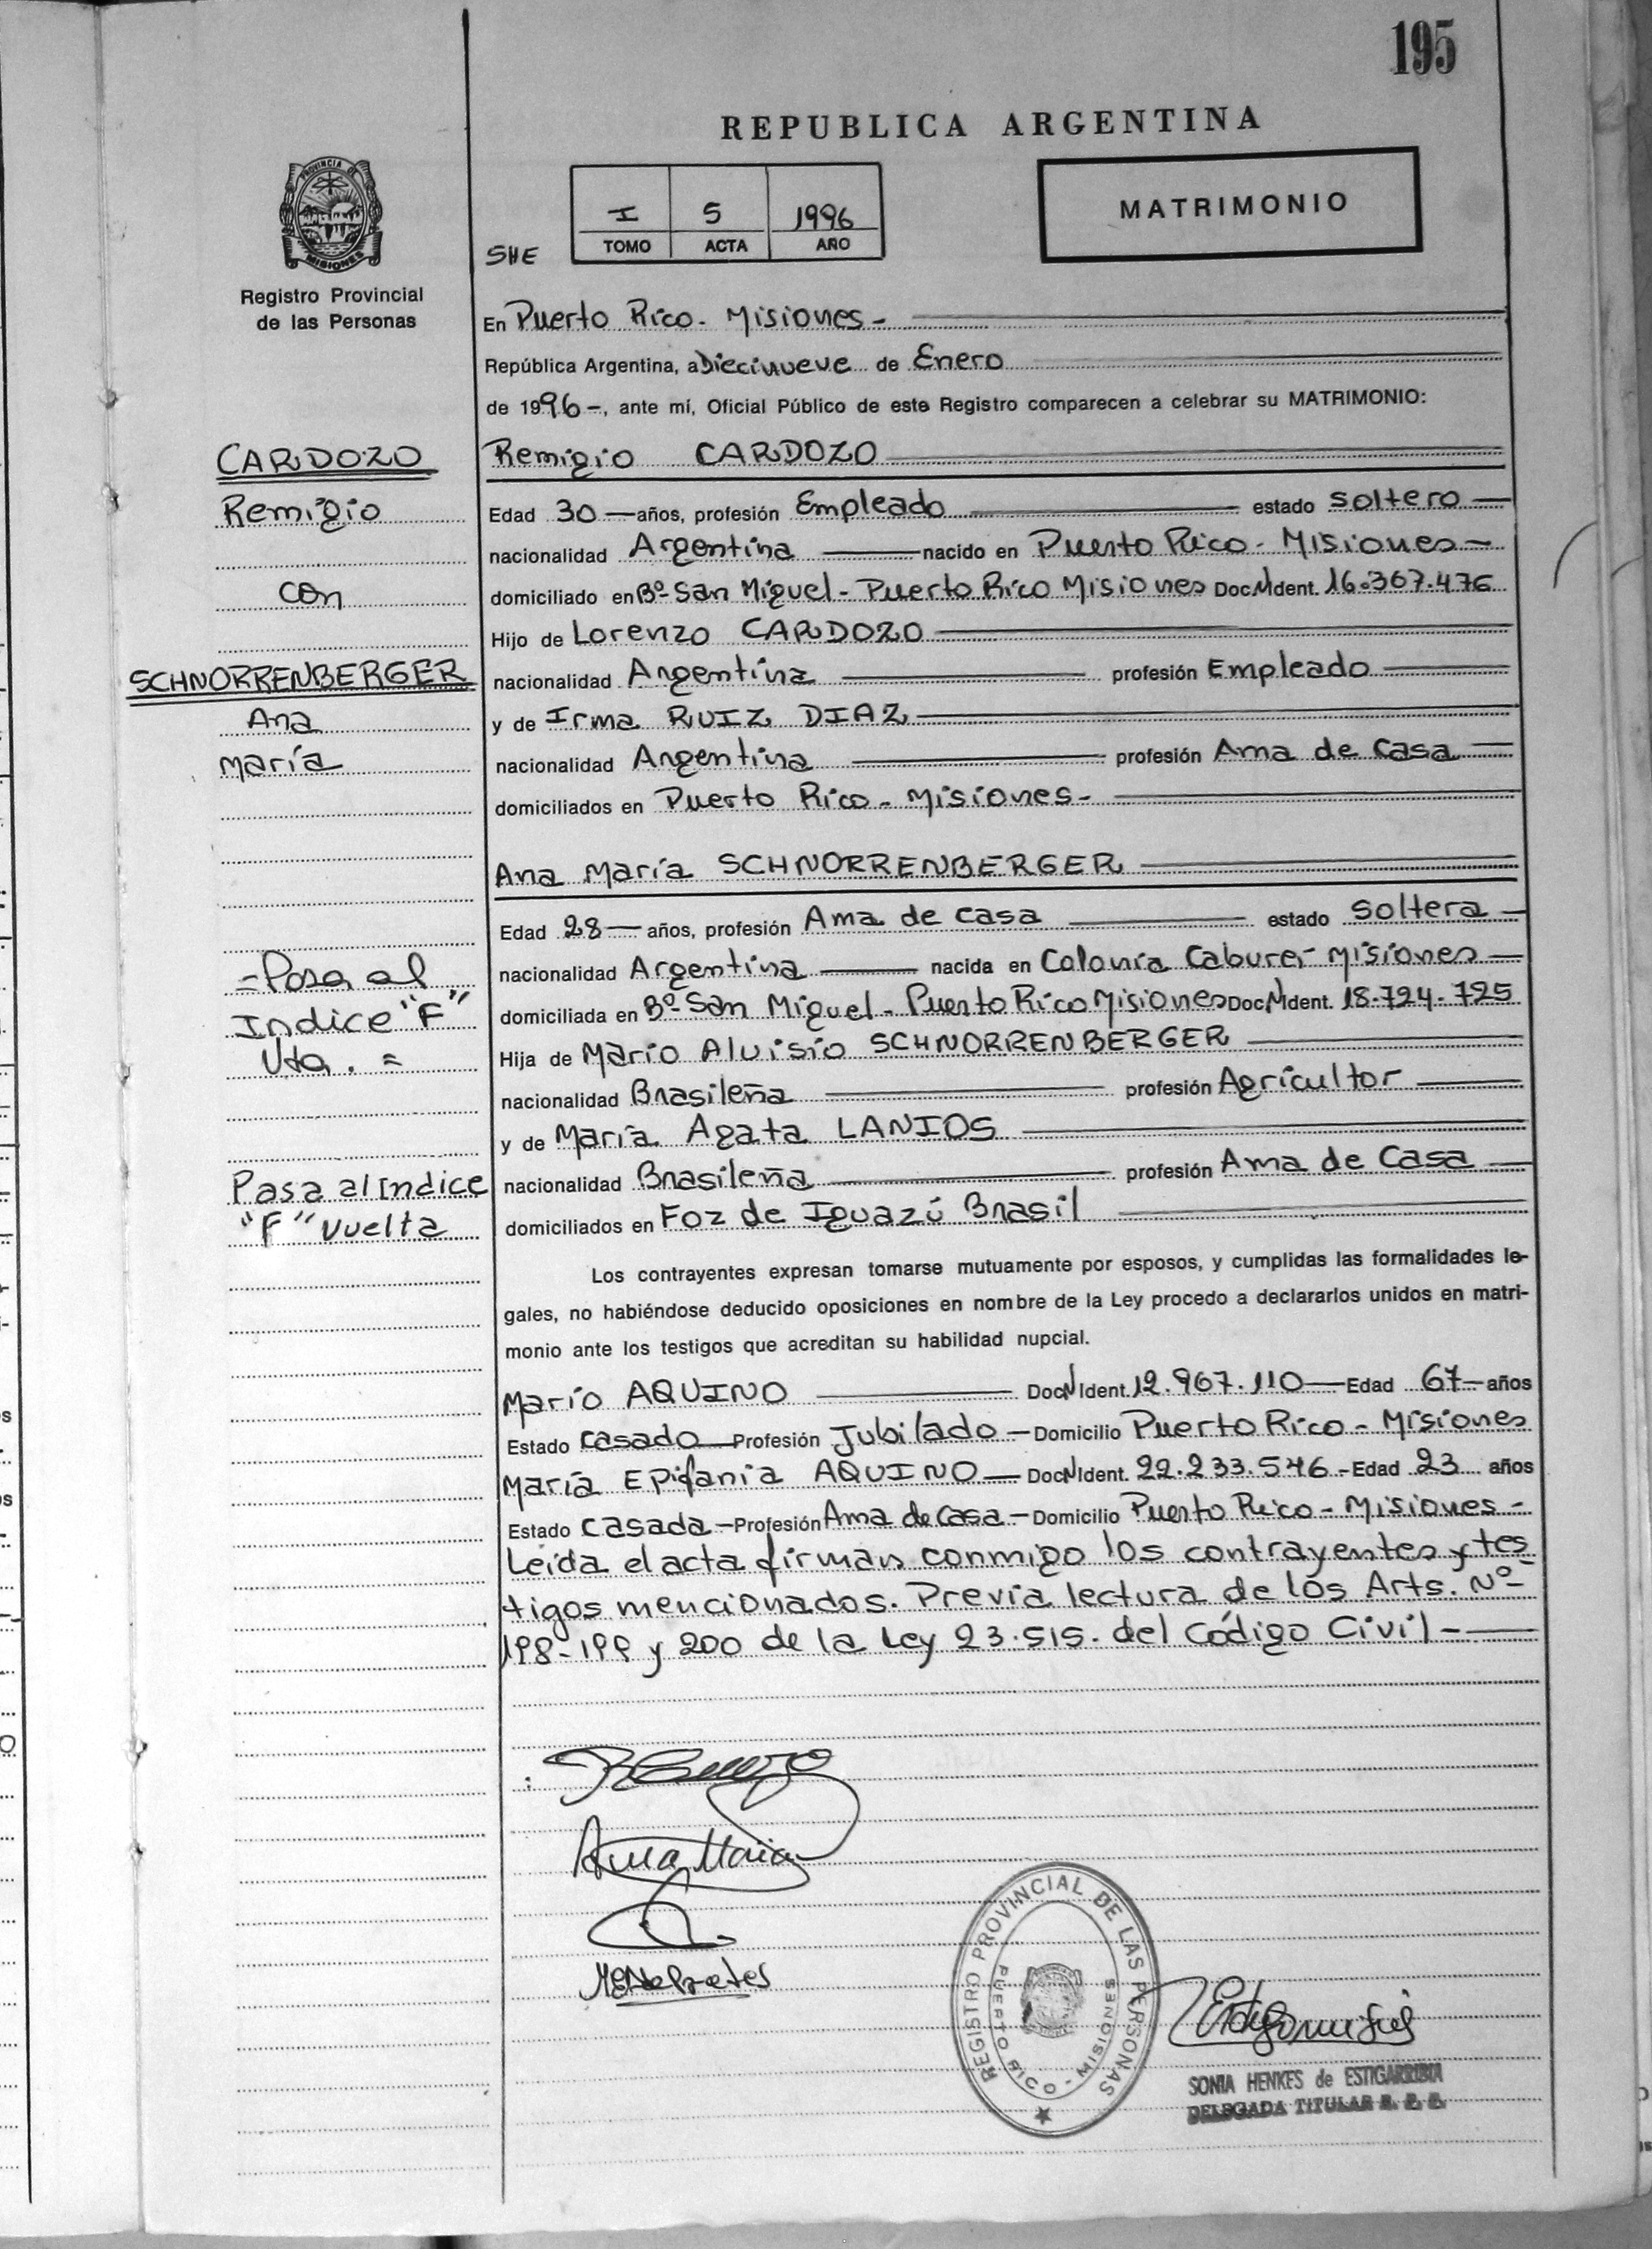 195
REPUBLICA ARGENTINA
PROVINCIA DE
MISIONES
Registro Provincial
de las Personas
SHE
I 5 1996
TOMO ACTA AÑO
MATRIMONIO
En Puerto Rico - Misiones -
República Argentina, a Diecinueve de Enero
de 1996 -, ante mí, Oficial Público de este Registro comparecen a celebrar su MATRIMONIO:
CARDOZO
Remigio
con
SCHNORRENBERGER
Ana
María
- Pasa al
Indice "F"
Vta. =
Pasa al Indice
"F" vuelta
Remigio CARDOZO
Edad 30 — años, profesión Empleado estado soltero —
nacionalidad Argentina — nacido en Puerto Rico - Misiones —
domiciliado en Bº San Miguel - Puerto Rico Misiones Doc.N Ident. 16.367.476
Hijo de Lorenzo CARDOZO
nacionalidad Argentina profesión Empleado
y de Irma RUIZ DIAZ
nacionalidad Argentina profesión Ama de Casa
domiciliados en Puerto Rico - Misiones -
Ana María SCHNORRENBERGER
Edad 28 — años, profesión Ama de casa estado soltera —
nacionalidad Argentina — nacida en Colonia Caburei Misiones —
domiciliada en Bº San Miguel - Puerto Rico Misiones Doc.N Ident. 18.724.725
Hija de Mario Aluisio SCHNORRENBERGER
nacionalidad Brasileña profesión Agricultor
y de María Agata LANIOS
nacionalidad Brasileña profesión Ama de Casa
domiciliados en Foz de Iguazú Brasil
Los contrayentes expresan tomarse mutuamente por esposos, y cumplidas las formalidades le-
gales, no habiéndose deducido oposiciones en nombre de la Ley procedo a declararlos unidos en matri-
monio ante los testigos que acreditan su habilidad nupcial.
Mario AQUINO Doc.N Ident. 12.967.110 — Edad 67 — años
Estado casado — Profesión Jubilado — Domicilio Puerto Rico - Misiones
María Epifania AQUINO — Doc.N Ident. 22.233.546 - Edad 23 años
Estado casada - Profesión Ama de Casa - Domicilio Puerto Rico - Misiones -
Leída el acta firman conmigo los contrayentes y tes
tigos mencionados. Previa lectura de los Arts. Nº
198-199 y 200 de la Ley 23.515. del Código Civil -
Ana María
REGISTRO PROVINCIAL DE LAS PERSONAS
PUERTO RICO - MISIONES
SONIA HENKES de ESTIGARRIBIA
DELEGADA TITULAR R. P. P.